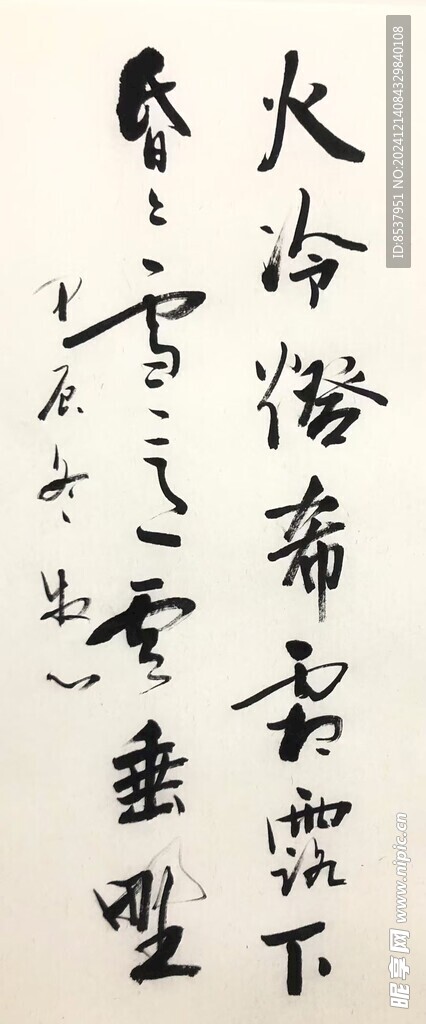 火冷燈希霜露下
昏々雪意雲垂野
甲辰冬牧心
ID:8537951 NO:20241214084329840108
昵享网 www.nipic.cn